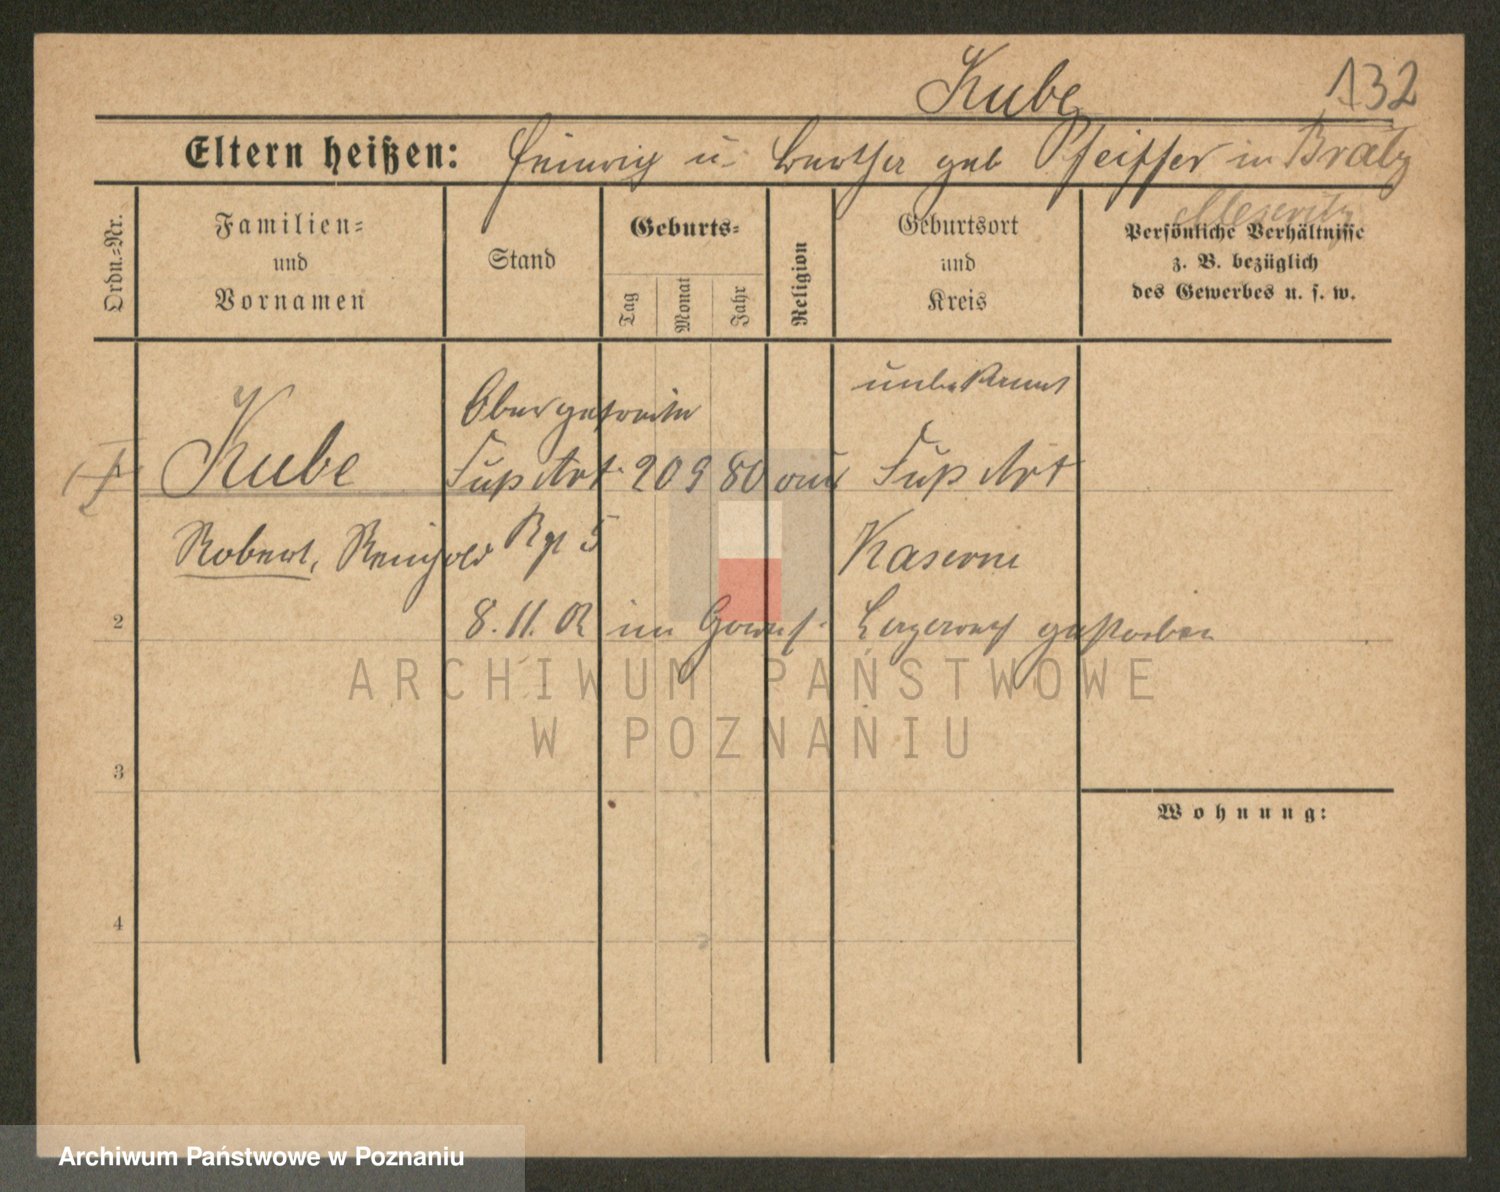 Kube 132
Eltern heißen: Heinrich u. Bertha geb Pfeiffer in Brätz
Meseritz
Ordn.-Nr.
Familien- und Vornamen
Stand
Geburts-
Tag
Monat
Jahr
Religion
Geburtsort und Kreis
Persönliche Verhältnisse
z. B. bezüglich
des Gewerbes u. s. w.
Obergefreiter unbekannt
Kube Fuß Art. 20 9 80 Fuß Art
Robert, Reinhold Rgt 5 Kaserne
2 8. 11. 02 im Garnis. Lazareth gestorben
3
Wohnung:
4
ARCHIWUM PAŃSTWOWE
W POZNANIU
Archiwum Państwowe w Poznaniu